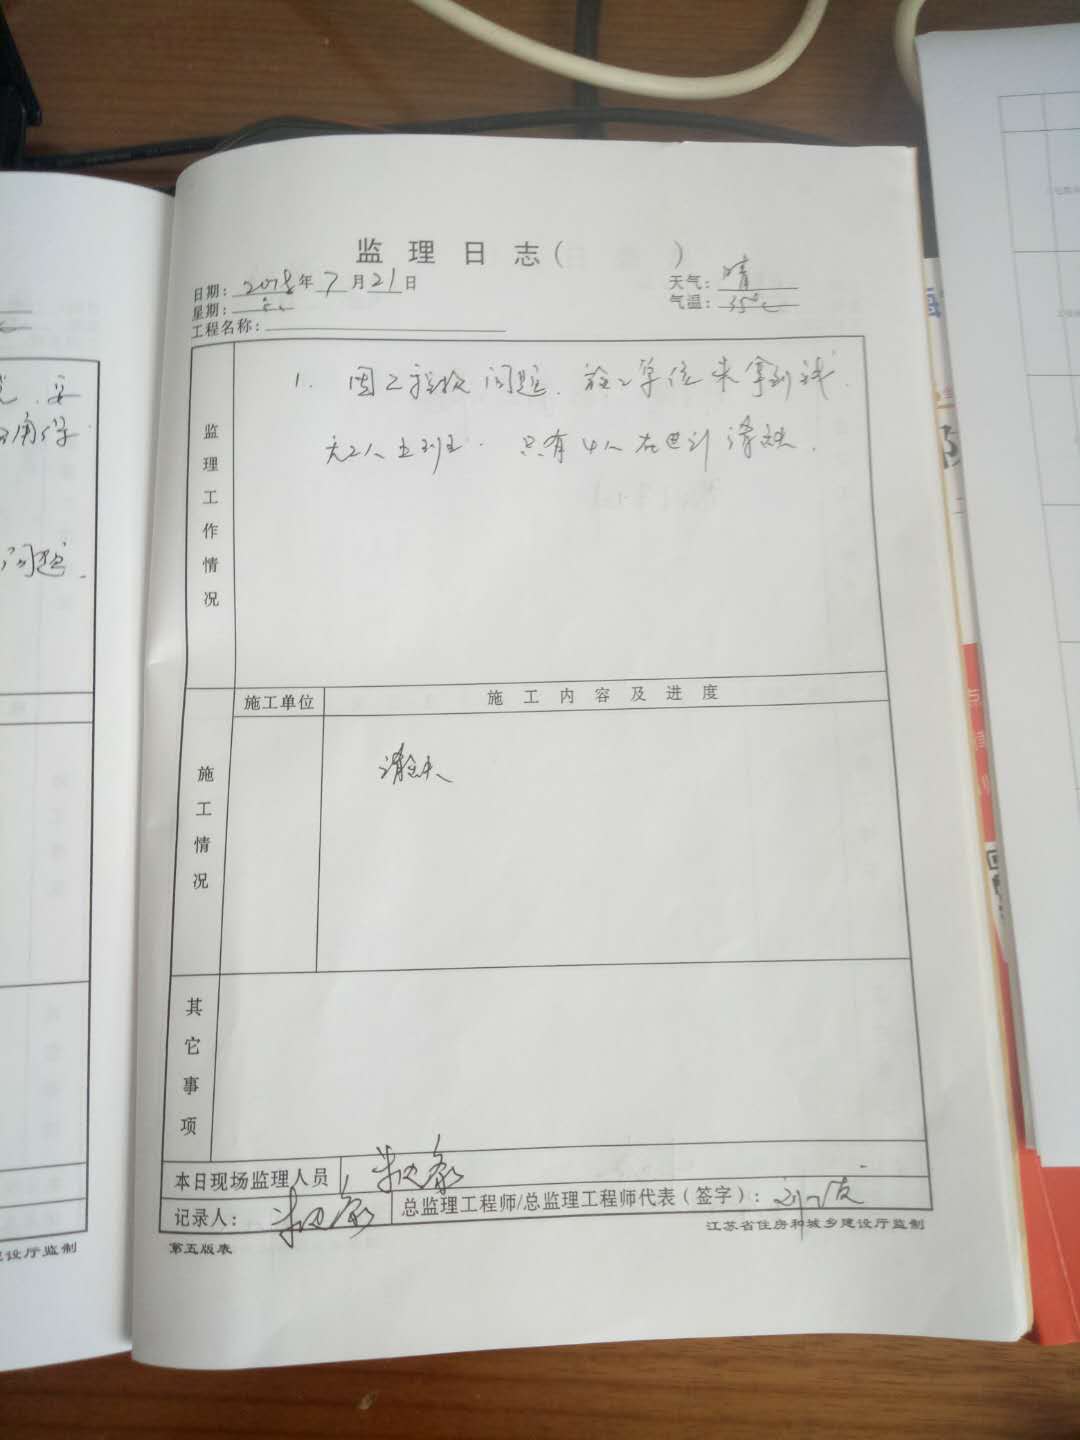 监理日志( )
日期: 2018年7月21日
天气: 晴
星期: 六
气温: 35℃
工程名称:
监理工作情况
1. 因工程款问题. 施工单位未拿到钱.
无工人上班. 只有4人在进行清表.
施工情况
施工单位
施工内容及进度
清表
其它事项
本日现场监理人员
记录人:
总监理工程师/总监理工程师代表(签字):
第五版表
江苏省住房和城乡建设厅监制
问题.
设厅监制